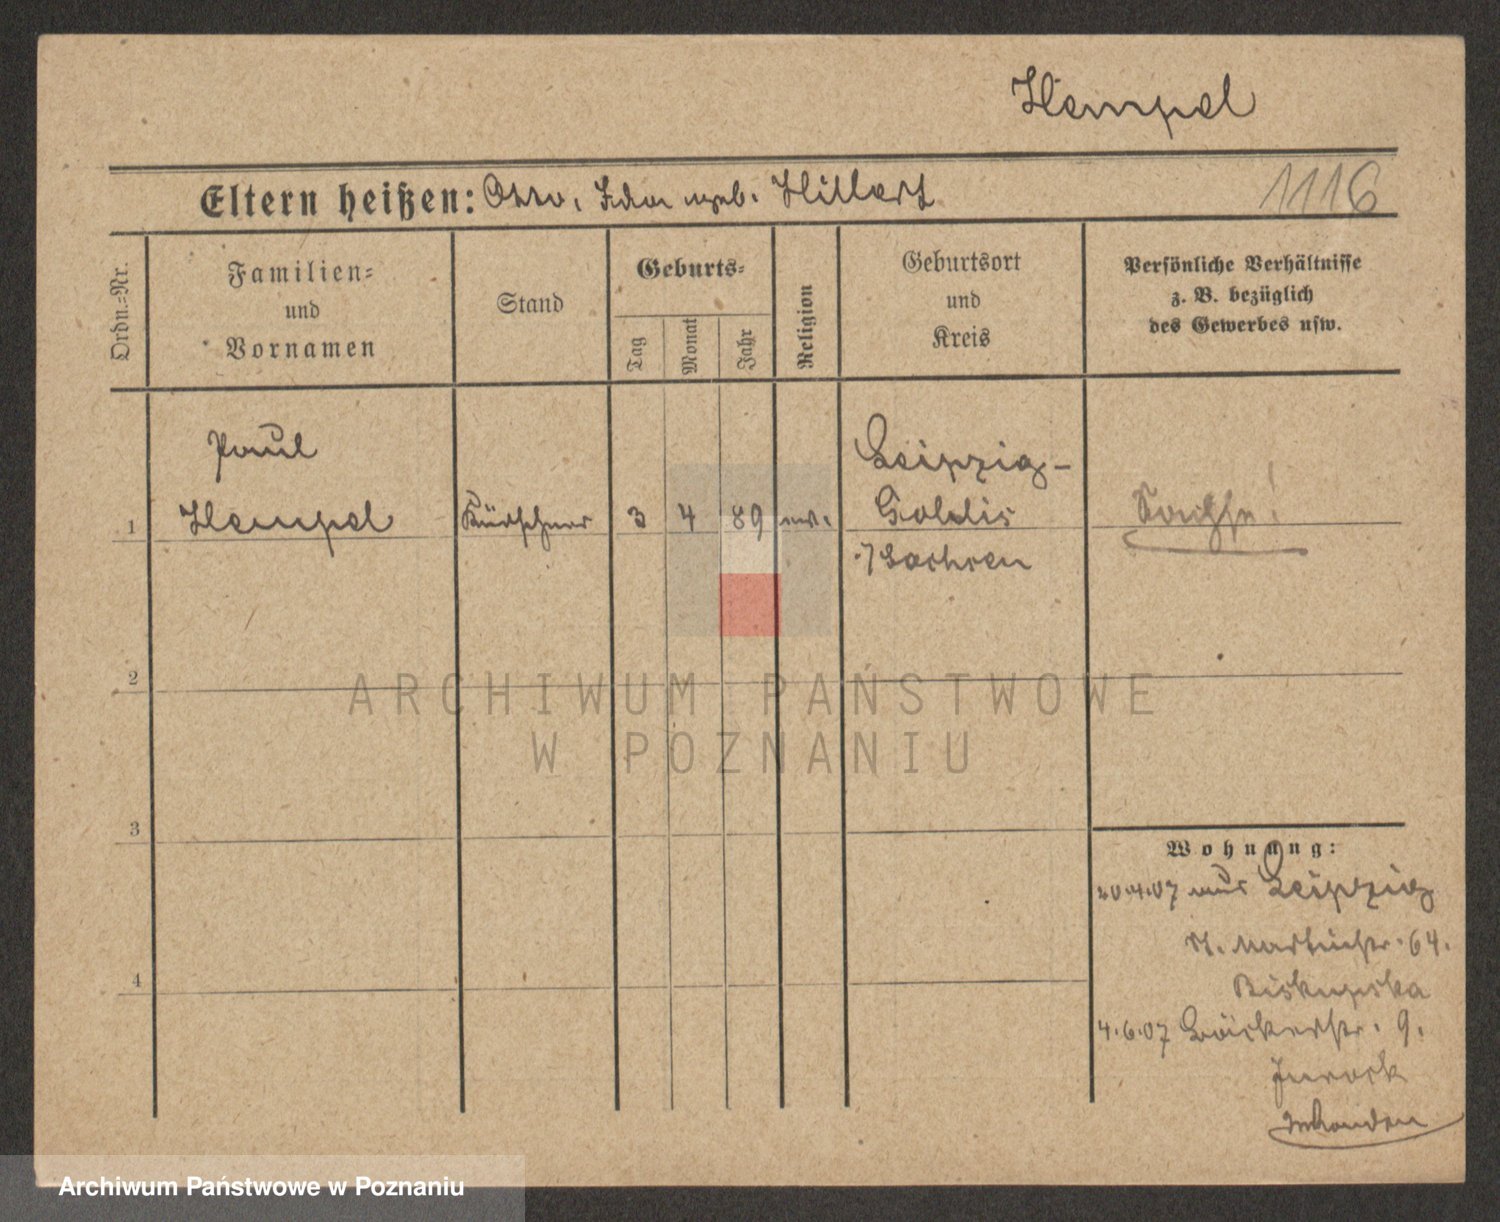 Hempel
Eltern heißen: Otto, Ida geb. Hillert
1116
Ordn.=Nr.
Familien=
und
Vornamen
Stand
Geburts=
Tag
Monat
Jahr
Religion
Geburtsort
und
Kreis
Persönliche Verhältnisse
z. B. bezüglich
des Gewerbes usw.
Paul
Leipzig-
1 Hempel Kürschner 3 4 89 ev. Gohlis
Sachse!
Sachsen
2
3
4
Wohnung:
20.4.07 aus Leipzig
St. Martinstr. 64.
Biskupska
4.6.07 Bäckerstr. 9.
ARCHIWUM PAŃSTWOWE
W POZNANIU
Archiwum Państwowe w Poznaniu